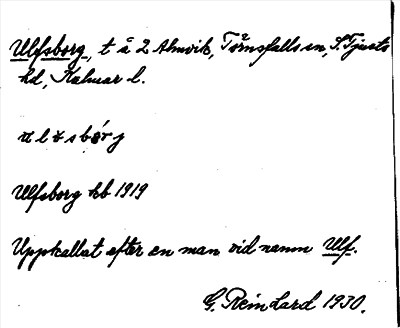 Ulfsborg, t å 2 Almvik, Törnsfalls sn, S. Tjusts
hd, Kalmar l.
Ulfsborg kb 1919
Uppkallat efter en man vid namn Ulf.
G. Reinhard 1930.